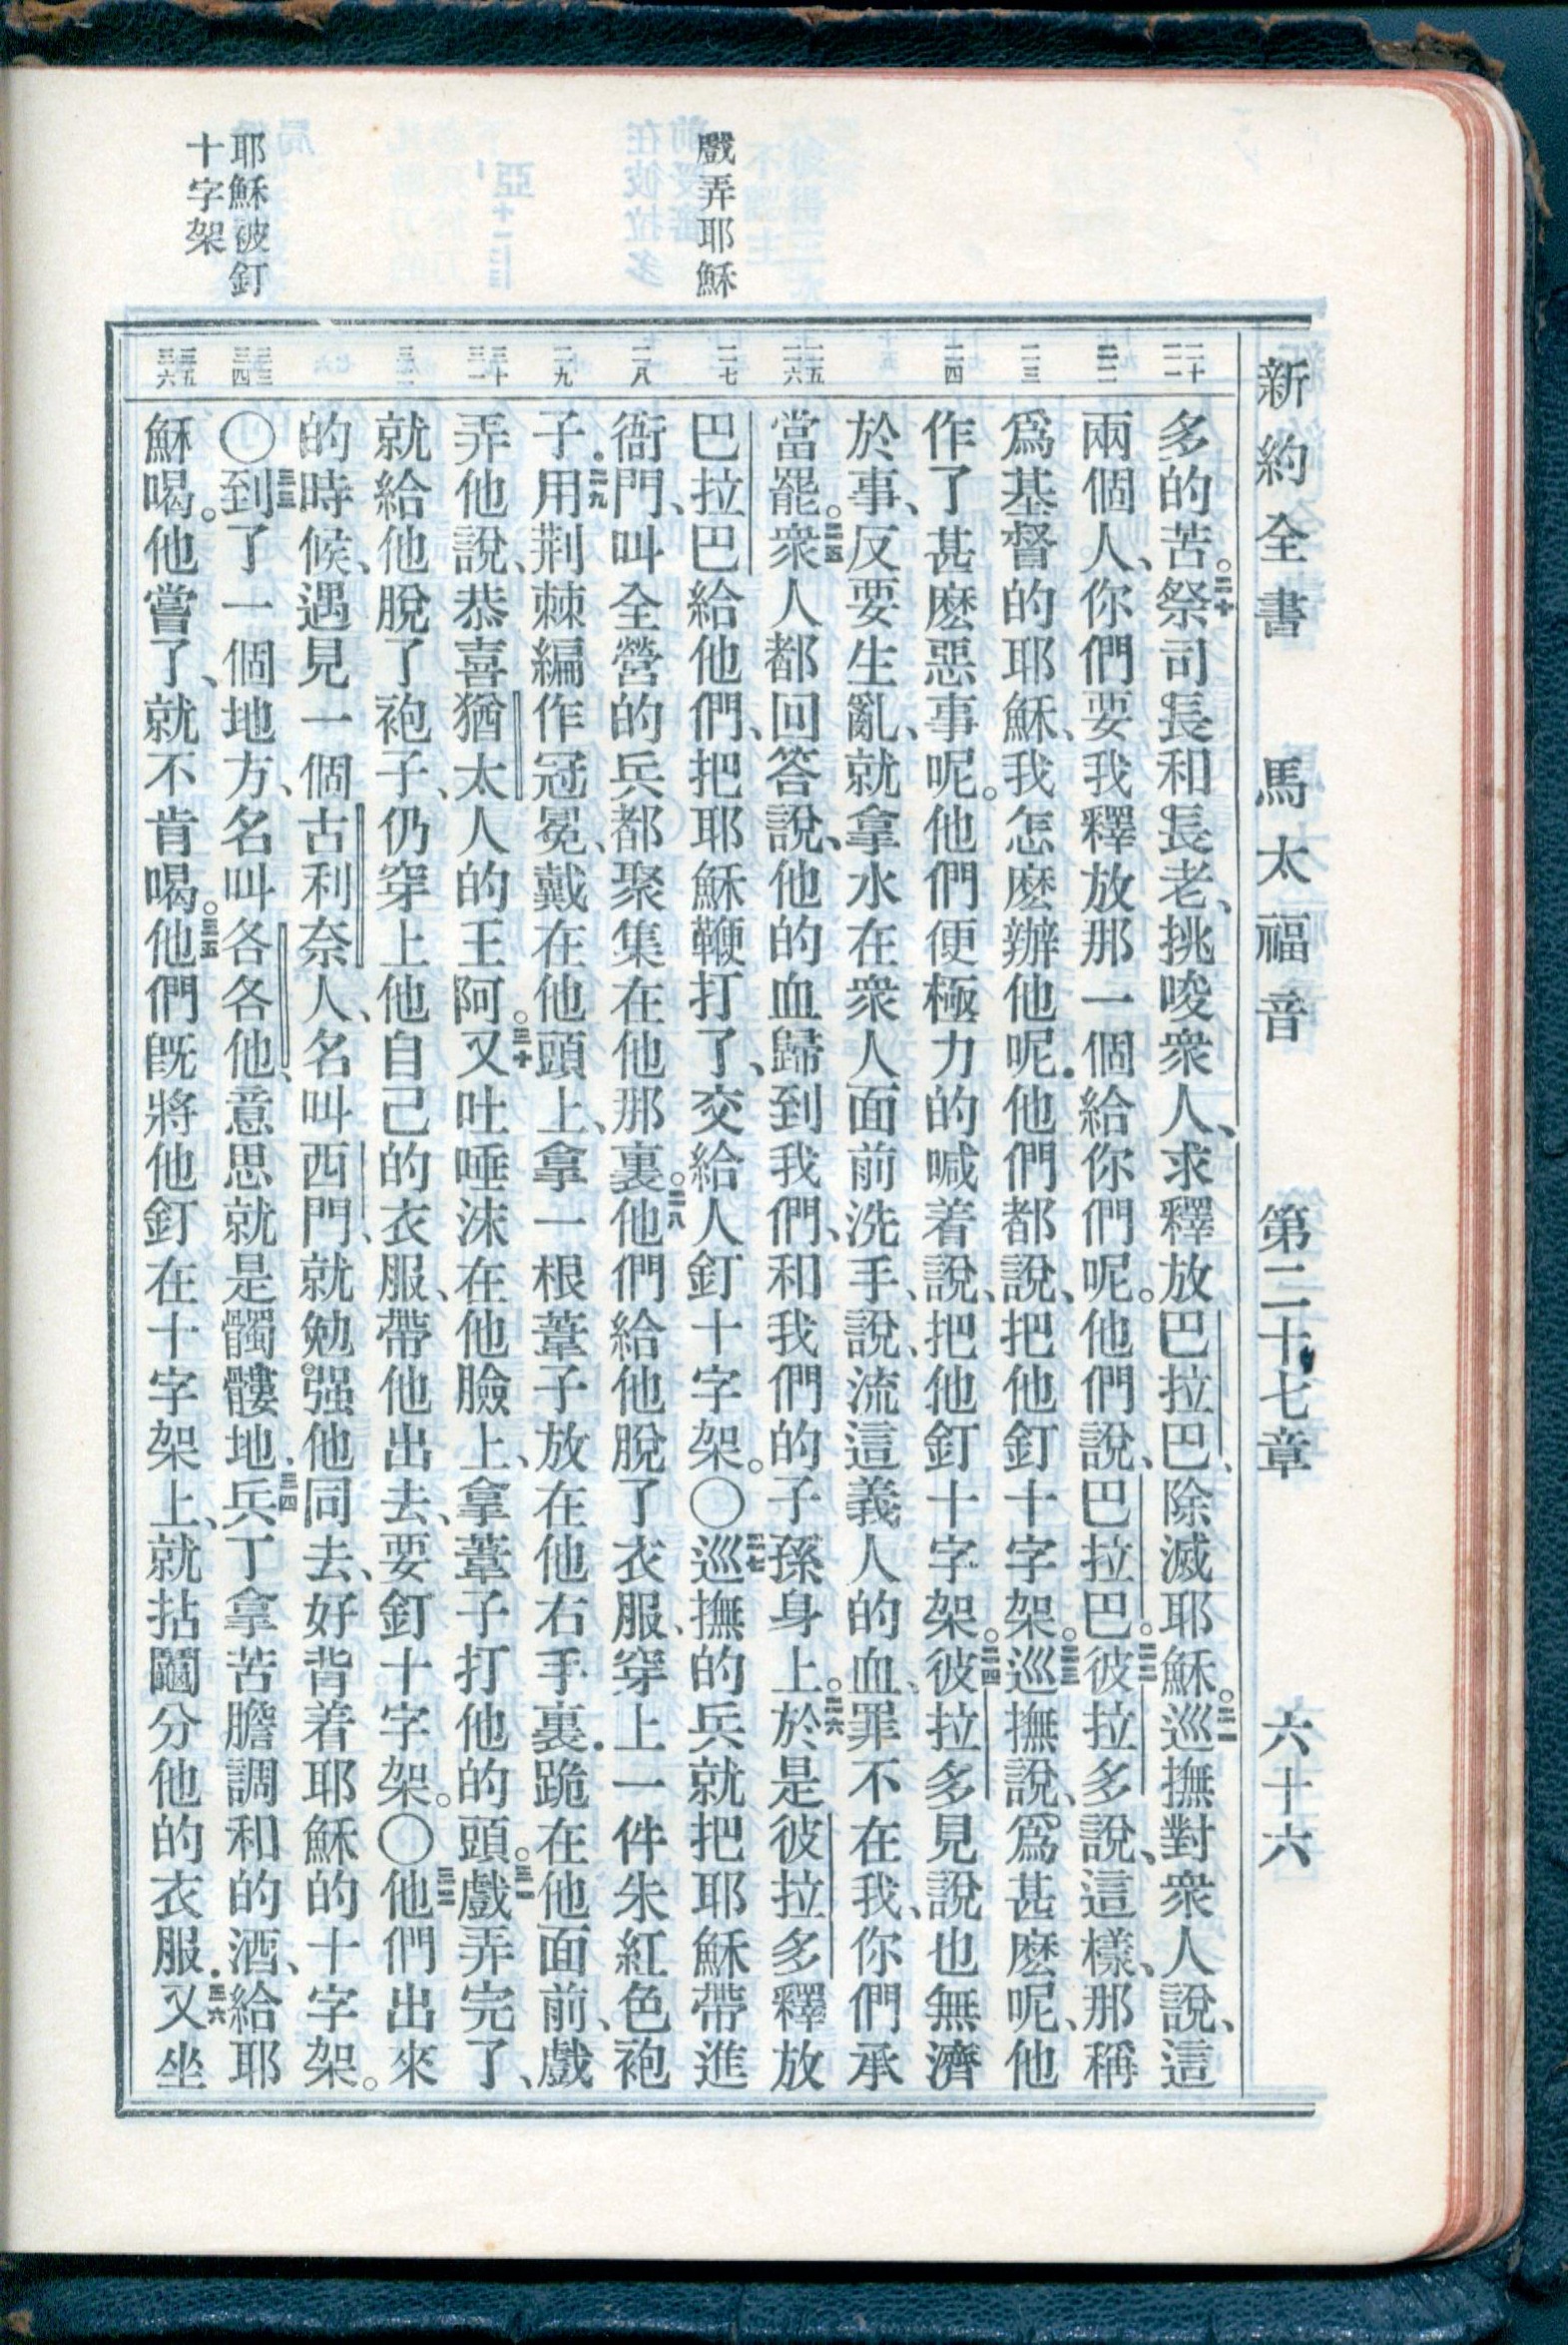 新約全書　馬太福音　第二十七章　六十六
戲弄耶穌
耶穌被釘
十字架
二十 二一
二二
二三
二四
二五 二六
二七
二八
二九
三十 三一
三二
三三 三四
三五 三六
多的苦。二十祭司長和長老、挑唆衆人、求釋放巴拉巴、除滅耶穌。二一巡撫對衆人說、這
兩個人、你們要我釋放那一個給你們呢。他們說、巴拉巴。二二彼拉多說、這樣、那稱
爲基督的耶穌、我怎麼辦他呢．他們都說、把他釘十字架。二三巡撫說、爲甚麼呢、他
作了甚麼惡事呢。他們便極力的喊着說、把他釘十字架。二四彼拉多見說也無濟
於事、反要生亂、就拿水在衆人面前洗手、說、流這義人的血、罪不在我、你們承
當罷。二五衆人都回答說、他的血歸到我們、和我們的子孫身上。二六於是彼拉多釋放
巴拉巴給他們、把耶穌鞭打了、交給人釘十字架。〇二七巡撫的兵就把耶穌帶進
衙門、叫全營的兵都聚集在他那裏。二八他們給他脫了衣服、穿上一件朱紅色袍
子．二九用荆棘編作冠冕、戴在他頭上、拿一根葦子放在他右手裏．跪在他面前、戲
弄他說、恭喜猶太人的王阿。三十又吐唾沫在他臉上、拿葦子打他的頭。三一戲弄完了、
就給他脫了袍子、仍穿上他自己的衣服、帶他出去、要釘十字架。〇三二他們出來
的時候、遇見一個古利奈人、名叫西門、就勉强他同去、好背着耶穌的十字架。
〇三三到了一個地方、名叫各各他、意思就是髑髏地．三四兵丁拿苦膽調和的酒、給耶
穌喝。他嘗了、就不肯喝。三五他們旣將他釘在十字架上、就拈鬮分他的衣服．三六又坐